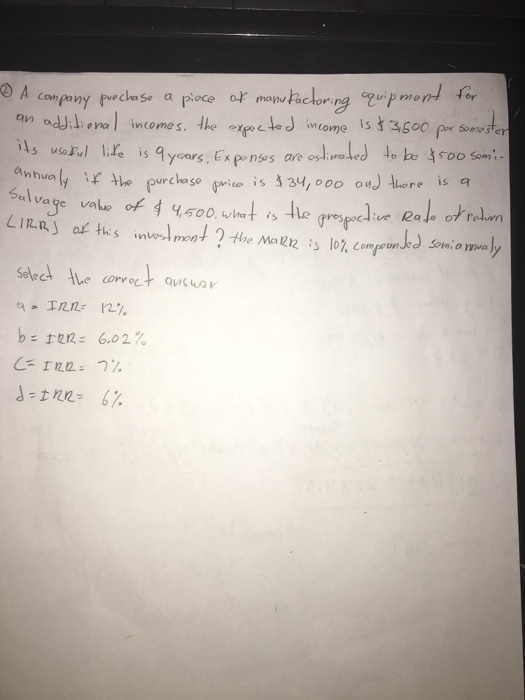 ② A company purchase a piece of manufactoring equipment for
an additional incomes. the expected income is $ 3,500 por semester
its useful life is 9 years. Expenses are estimated to be $500 semi-
annualy if the purchase price is $ 34,000 and there is a
Salvage value of $ 4,500. what is the prospective Rate of return
(IRR) of this investment? the MaRR is 10% compounded semiannualy
Select the correct answer
a = IRR= 12%
b = IRR= 6.02%
C= IRR= 7%
d = IRR= 6%